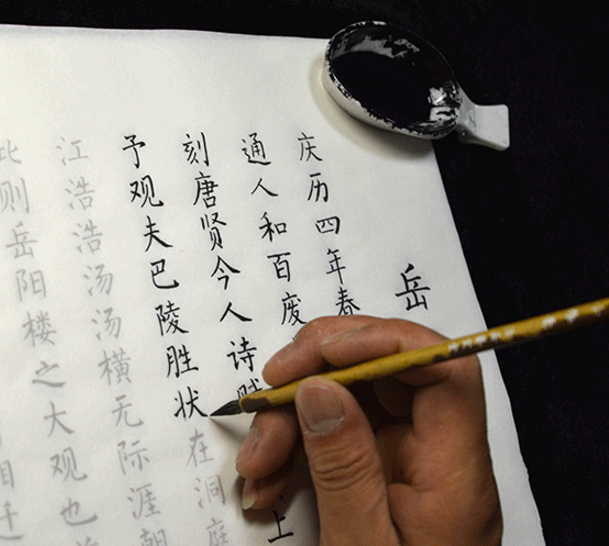 岳
庆历四年春
通人和百废
刻唐贤今人诗赋上
予观夫巴陵胜状在洞庭
江浩浩汤汤横无际涯朝
此则岳阳楼之大观也
迁